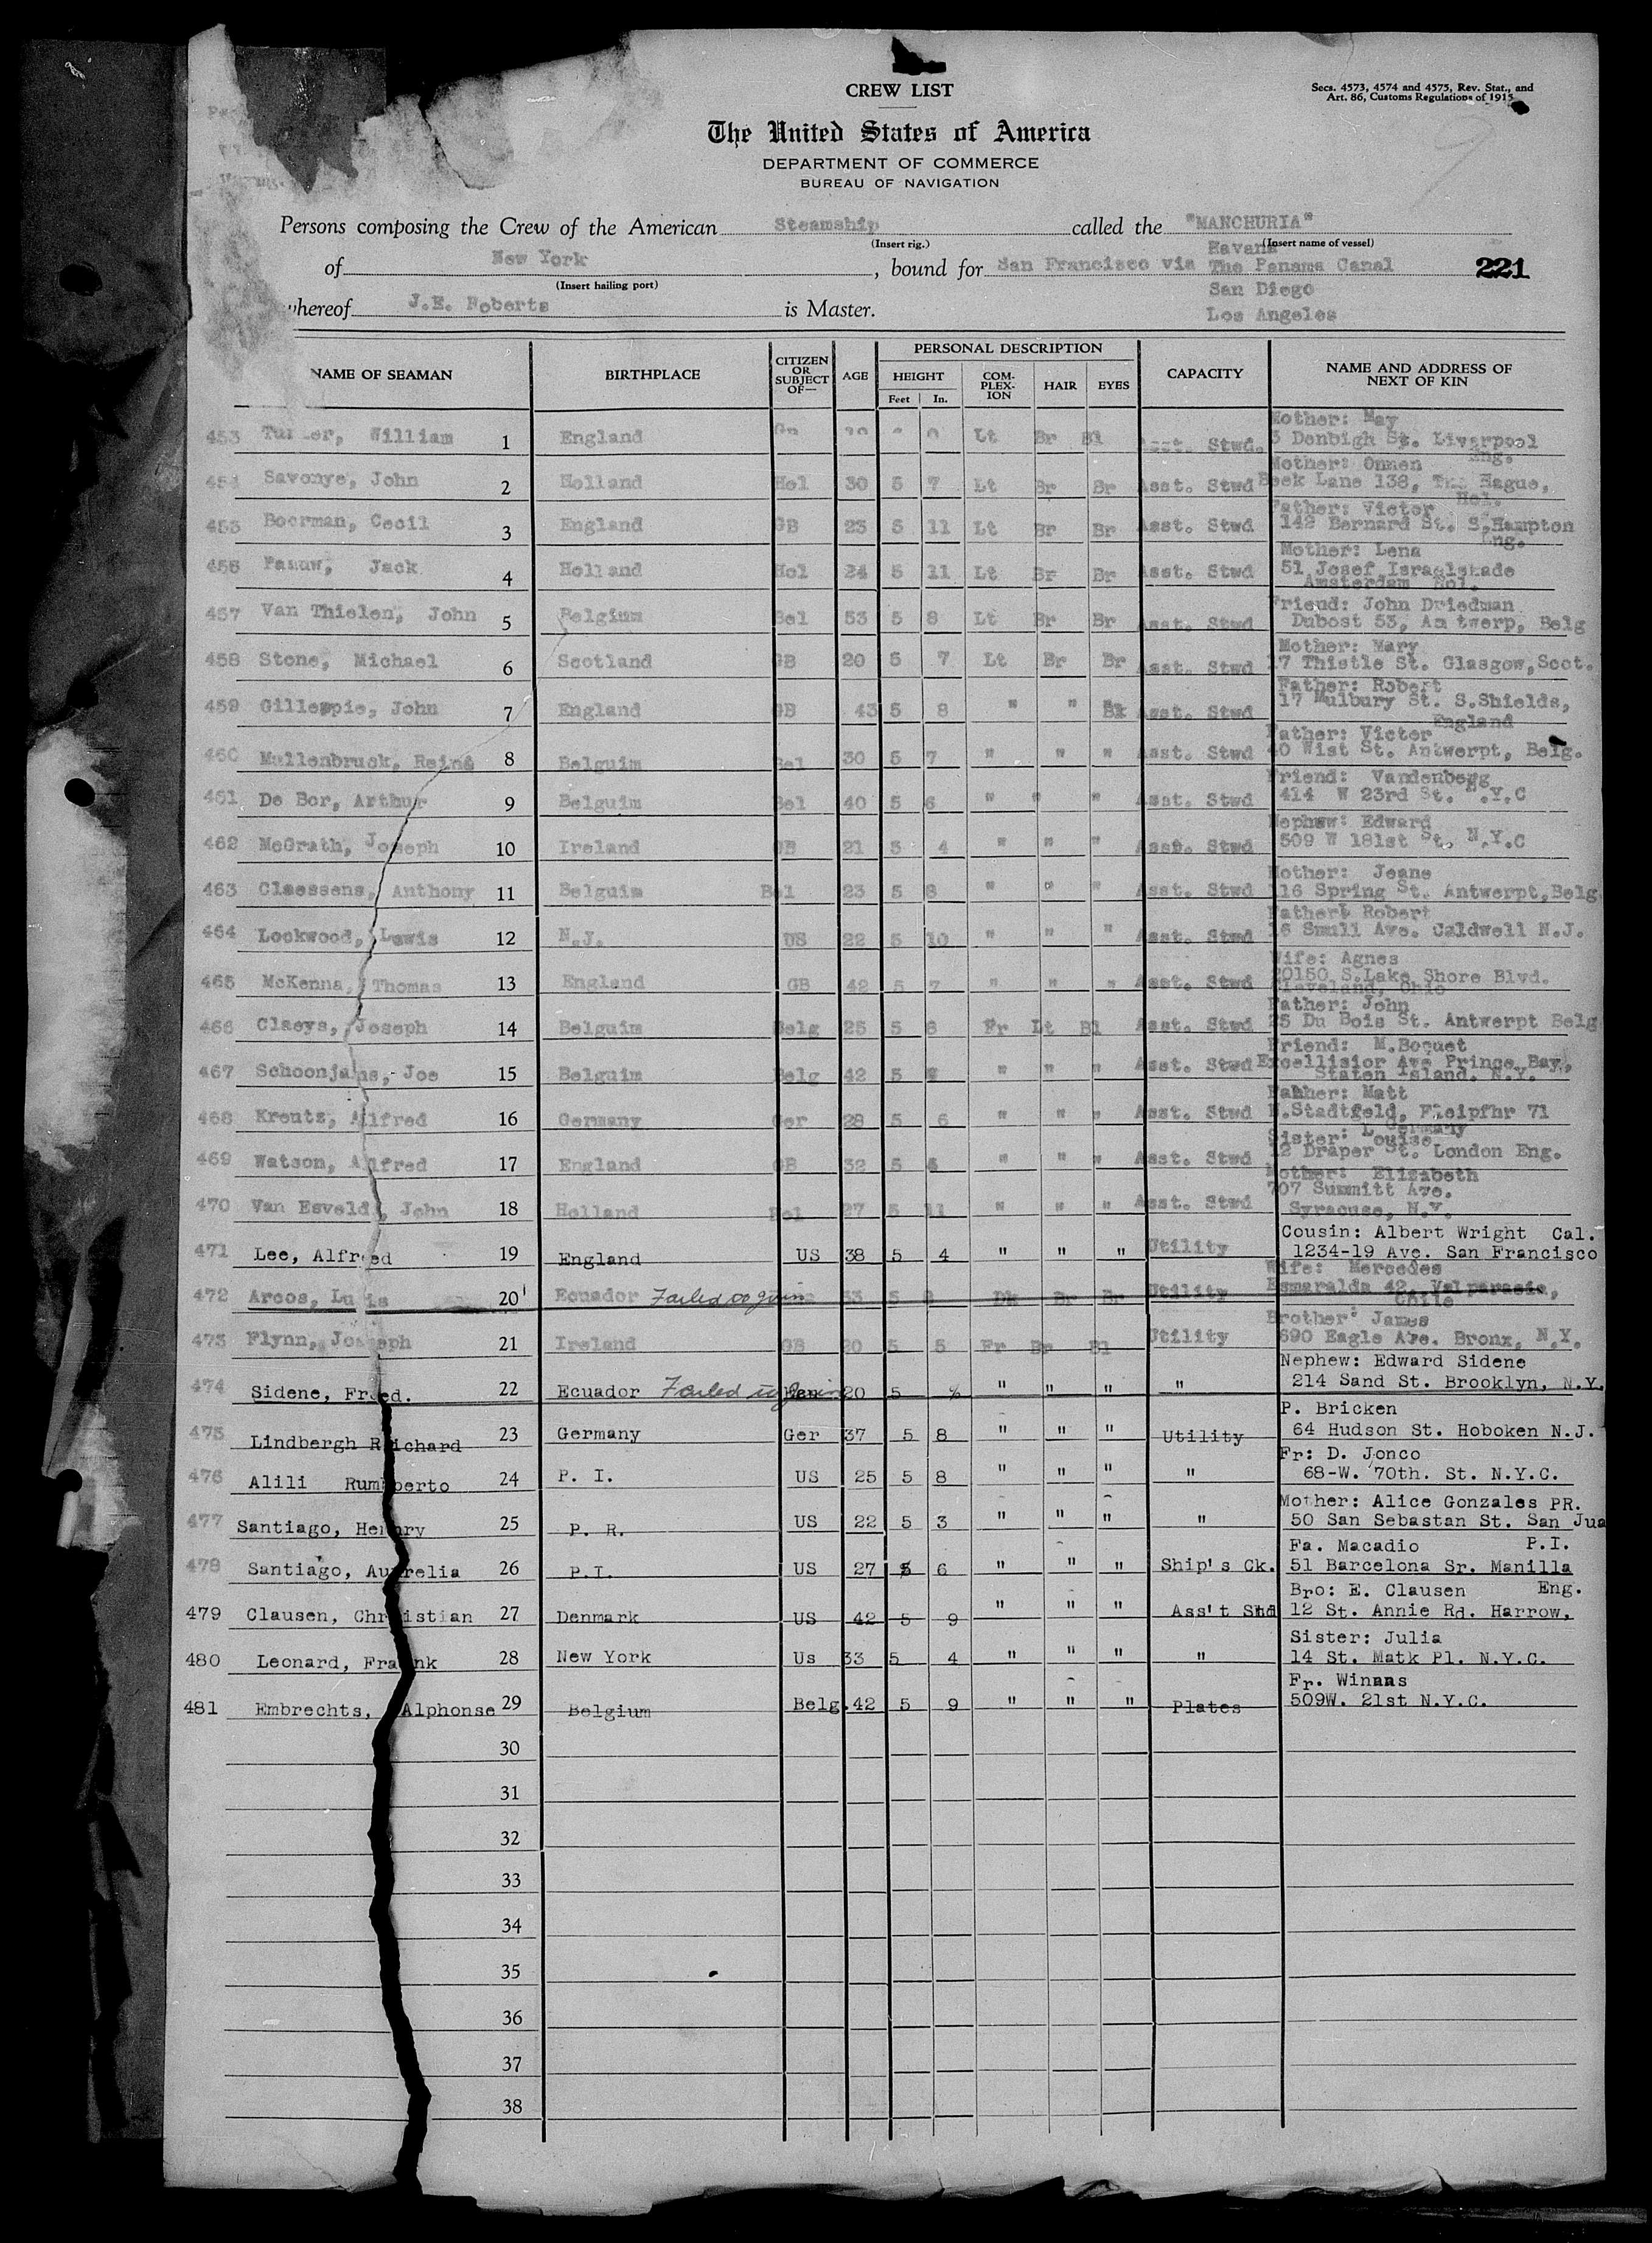 CREW LIST
Secs. 4573, 4574 and 4575, Rev. Stat., and
Art. 86, Customs Regulations of 1915
The United States of America
DEPARTMENT OF COMMERCE
BUREAU OF NAVIGATION
Persons composing the Crew of the American Steamship called the "MANCHURIA"
(Insert rig.) (Insert name of vessel)
of New York, bound for San Francisco via Havana The Panama Canal 221
(Insert hailing port)
San Diego
whereof J.E. Roberts is Master.
Los Angeles
NAME OF SEAMAN BIRTHPLACE CITIZEN OR SUBJECT OF— AGE PERSONAL DESCRIPTION CAPACITY NAME AND ADDRESS OF NEXT OF KIN
HEIGHT COM-PLEX-ION HAIR EYES
Feet In.
Mother: May
453 William 1 England Lt Br Bl Stwd. 3 Denbigh St. Liverpool
Eng.
Mother: Onnen
454 Savonye, John 2 Holland Hol 30 5 7 Lt Br Br Asst. Stwd Beek Lane 138, The Hague,
Hol.
Father: Victor
455 Boorman, Cecil 3 England GB 23 5 11 Lt Br Br Asst. Stwd 142 Bernard St. S.Hampton
Eng.
Mother: Lena
456 Jack 4 Holland Hol 24 5 11 Lt Br Br Asst. Stwd 51 Josef Israelskade
Amsterdam Hol.
Friend: John Driedman
457 Van Thielen, John 5 Belgium Bel 53 5 8 Lt Br Br Asst. Stwd Dubost 53, Antwerp, Belg
Mother: Mary
458 Stone, Michael 6 Scotland GB 20 5 7 Lt Br Br Asst. Stwd 17 Thistle St. Glasgow,Scot.
Father: Robert
459 Gillespie, John 7 England GB 43 5 8 " " Asst. Stwd 17 Mulbury St. S.Shields,
England
Father: Victor
460 Mullenbruck, Reine 8 Belguim Bel 30 5 7 " " " Asst. Stwd 40 Wist St. Antwerpt, Belg.
Friend: Vandenberg
461 De Bor, Arthur 9 Belguim Bel 40 5 6 " " " Asst. Stwd 414 W 23rd St. N.Y.C
Nephew: Edward
462 McGrath, Joseph 10 Ireland GB 21 5 4 " " " Asst. Stwd 509 W 181st St. N.Y.C
Mother: Jeane
463 Claessens, Anthony 11 Belguim Bel 23 5 8 " " " Asst. Stwd 116 Spring St. Antwerpt,Belg
Father: Robert
464 Lockwood, Lewis 12 N.J. US 22 5 10 " " " Asst. Stwd 16 Smull Ave. Caldwell N.J.
Wife: Agnes
465 McKenna, Thomas 13 England GB 42 5 7 " " " Asst. Stwd 20150 S.Lake Shore Blvd.
Cleveland, Ohio
Father: John
466 Claeys, Joseph 14 Belguim Belg 25 5 8 Fr Lt Bl Asst. Stwd 25 Du Bois St. Antwerpt Belg
Friend: M.Boquet
467 Schoonjans, Joe 15 Belguim Belg 42 5 " " " Asst. Stwd Excellisior Ave Prince Bay,
Staten Island. N.Y.
Father: Matt
468 Kreutz, Alfred 16 Germany Ger 28 5 6 " " " Asst. Stwd N.Stadtfeld, Fleipfhr 71
Germany
Sister: Louise
469 Watson, Alfred 17 England GB 32 5 " " " Asst. Stwd 12 Draper St. London Eng.
Mother: Elizabeth
470 Van Esveld, John 18 Holland Hol 27 5 11 " " " Asst. Stwd 707 Summitt Ave.
Syracuse, N.Y.
Cousin: Albert Wright Cal.
471 Lee, Alfred 19 England US 38 5 4 " " " Utility 1234-19 Ave. San Francisco
Wife: Mercedes
472 Arcos, Luis 20 Ecuador Failed to join 33 5 Dk Br Br Utility Esmaralda 42, Valparasio,
Chile
Brother: James
473 Flynn, Joseph 21 Ireland GB 20 5 5 Fr Br Bl Utility 690 Eagle Ave. Bronx, N.Y.
Nephew: Edward Sidene
474 Sidene, Fred. 22 Ecuador Failed to join 20 5 " " " " 214 Sand St. Brooklyn, N.Y.
P. Bricken
475 Lindbergh Richard 23 Germany Ger 37 5 8 " " " Utility 64 Hudson St. Hoboken N.J.
Fr: D. Jonco
476 Alili Rumberto 24 P. I. US 25 5 8 " " " " 68-W. 70th. St. N.Y.C.
Mother: Alice Gonzales PR.
477 Santiago, Henry 25 P. R. US 22 5 3 " " " " 50 San Sebastan St. San Jua
Fa. Macadio P.I.
478 Santiago, Aurelia 26 P.I. US 27 5 6 " " " Ship's Ck. 51 Barcelona Sr. Manilla
Bro: E. Clausen Eng.
479 Clausen, Christian 27 Denmark US 42 5 9 " " " Ass't Std 12 St. Annie Rd. Harrow,
Sister: Julia
480 Leonard, Frank 28 New York Us 33 5 4 " " " " 14 St. Matk Pl. N.Y.C.
Fr. Winans
481 Embrechts, Alphonse 29 Belgium Belg. 42 5 9 " " " Plates 509W. 21st N.Y.C.
30
31
32
33
34
35
36
37
38